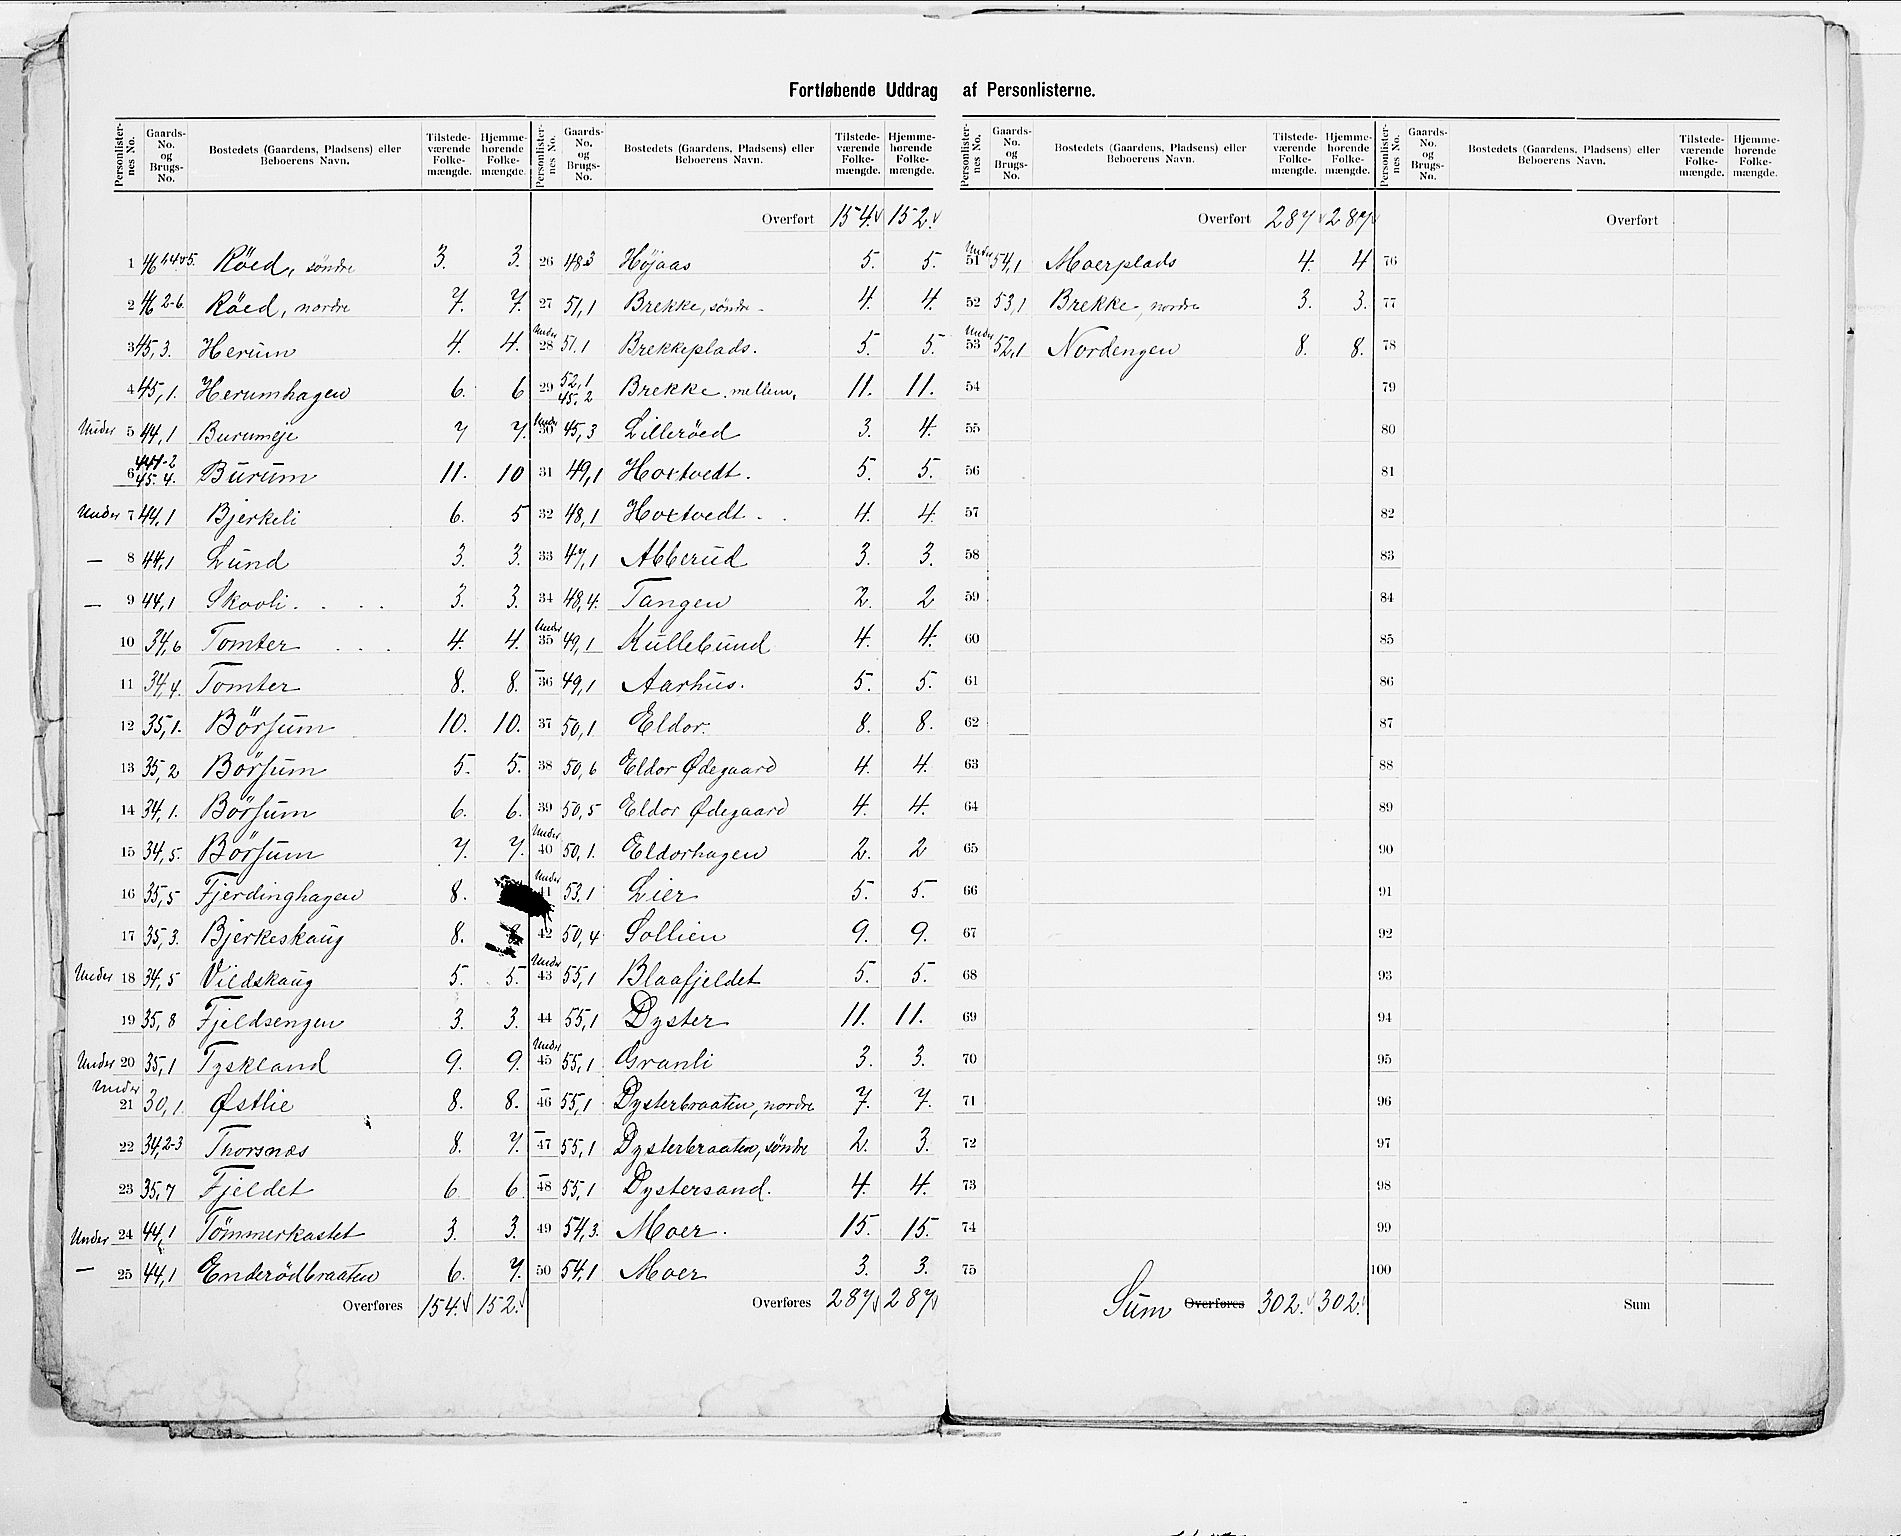 Fortløbende Uddrag af Personlisterne.
Personlisternes No. | Gaards-No. og Brugs-No. | Bostedets (Gaardens, Pladsens) eller Beboerens Navn. | Tilstedeværende Folkemængde. | Hjemmehørende Folkemængde.
1 46,1.4.5. Röed, søndre 3. 3.
2 46 2-6. Röed, nordre 7. 7.
3 45,3. Herum 4. 4.
4 45,1. Herumhagen 6. 6
Under 5 44,1 Burumeje 7 7.
6 44,1-2 45.4. Burum 11. 10
Under 7 44,1 Bjerkeli 6. 5
— 8 44,1 Lund 3. 3.
— 9 44,1 Skooli. 3. 3.
10 34,6 Tomter 4. 4.
11 34,4. Tomter 8. 8.
12 35,1. Börsum 10. 10.
13 35,2 Börsum 5. 5.
14 34,1. Börsum 6. 6.
15 34,5. Börsum 7. 7.
16 35,5 Fjerdinghagen 8.
17 35,3. Bjerkeskaug 8. 8
Under 18 34,5 Vildskaug 5. 5.
19 35,8 Fjeldsengen 3. 3.
Under 20 35,1 Tyskland 9. 9.
Under 21 30,1. Østlie 8. 8.
22 34,2-3 Thorsnæs 8. 7.
23 35,7 Fjeldet 6 6
Under 24 44,1 Tömmerkastet 3. 3.
— 25 44,1 Enderödbraaten 6. 7.
Overføres 154. 152.
Personlisternes No. | Gaards-No. og Brugs-No. | Bostedets (Gaardens, Pladsens) eller Beboerens Navn. | Tilstedeværende Folkemængde. | Hjemmehørende Folkemængde.
Overført 154. 152.
26 48.3 Höjaas 5. 5.
27 51,1 Brekke, søndre. 4. 4.
Under 28 51.1 Brekkeplads. 5. 5.
29 52,1 45.2 Brekke, mellem. 11. 11.
Under 30 45,3 Lilleröed 3. 4.
31 49,1 Hoxtvedt. 5. 5.
32 48,1 Hoxtvedt. 4. 4.
33 47,1 Abberud 3. 3.
34 48,4. Tangen 2. 2
Under 35 49,1 Kullebund 4. 4.
— 36 49,1 Aarhus. 5. 5.
37 50,1 Eldor. 8. 8.
38 50,6 Eldor Ødegaard 4. 4.
39 50,5 Eldor Ødegaard 4. 4.
Under 40 50,1. Eldorhagen 2. 2
Under 41 53,1 Lier 5. 5.
42 50,4 Sollien 9. 9.
Under 43 55,1 Blaafjeldet 5. 5.
44 55,1 Dyster 11. 11.
Under 45 55,1 Granli 3. 3.
— 46 55,1 Dysterbraaten, nordre 7. 7.
— 47 55,1 Dysterbraaten, søndre 2. 3.
— 48 55,1 Dystersand. 4. 4.
49 54,3. Moer. 15. 15.
50 54,1 Moer 3. 3.
Overføres 287 287
Personlisternes No. | Gaards-No. og Brugs-No. | Bostedets (Gaardens, Pladsens) eller Beboerens Navn. | Tilstedeværende Folkemængde. | Hjemmehørende Folkemængde.
Overført 287 287
Under 51 54,1 Moerplads 4. 4
52 53,1 Brekke, nordre 3. 3.
Under 53 52,1 Nordengen 8. 8.
54
55
56
57
58
59
60
61
62
63
64
65
66
67
68
69
70
71
72
73
74
75
Sum Overføres 302. 302.
Personlisternes No. | Gaards-No. og Brugs-No. | Bostedets (Gaardens, Pladsens) eller Beboerens Navn. | Tilstedeværende Folkemængde. | Hjemmehørende Folkemængde.
Overført
76
77
78
79
80
81
82
83
84
85
86
87
88
89
90
91
92
93
94
95
96
97
98
99
100
Sum